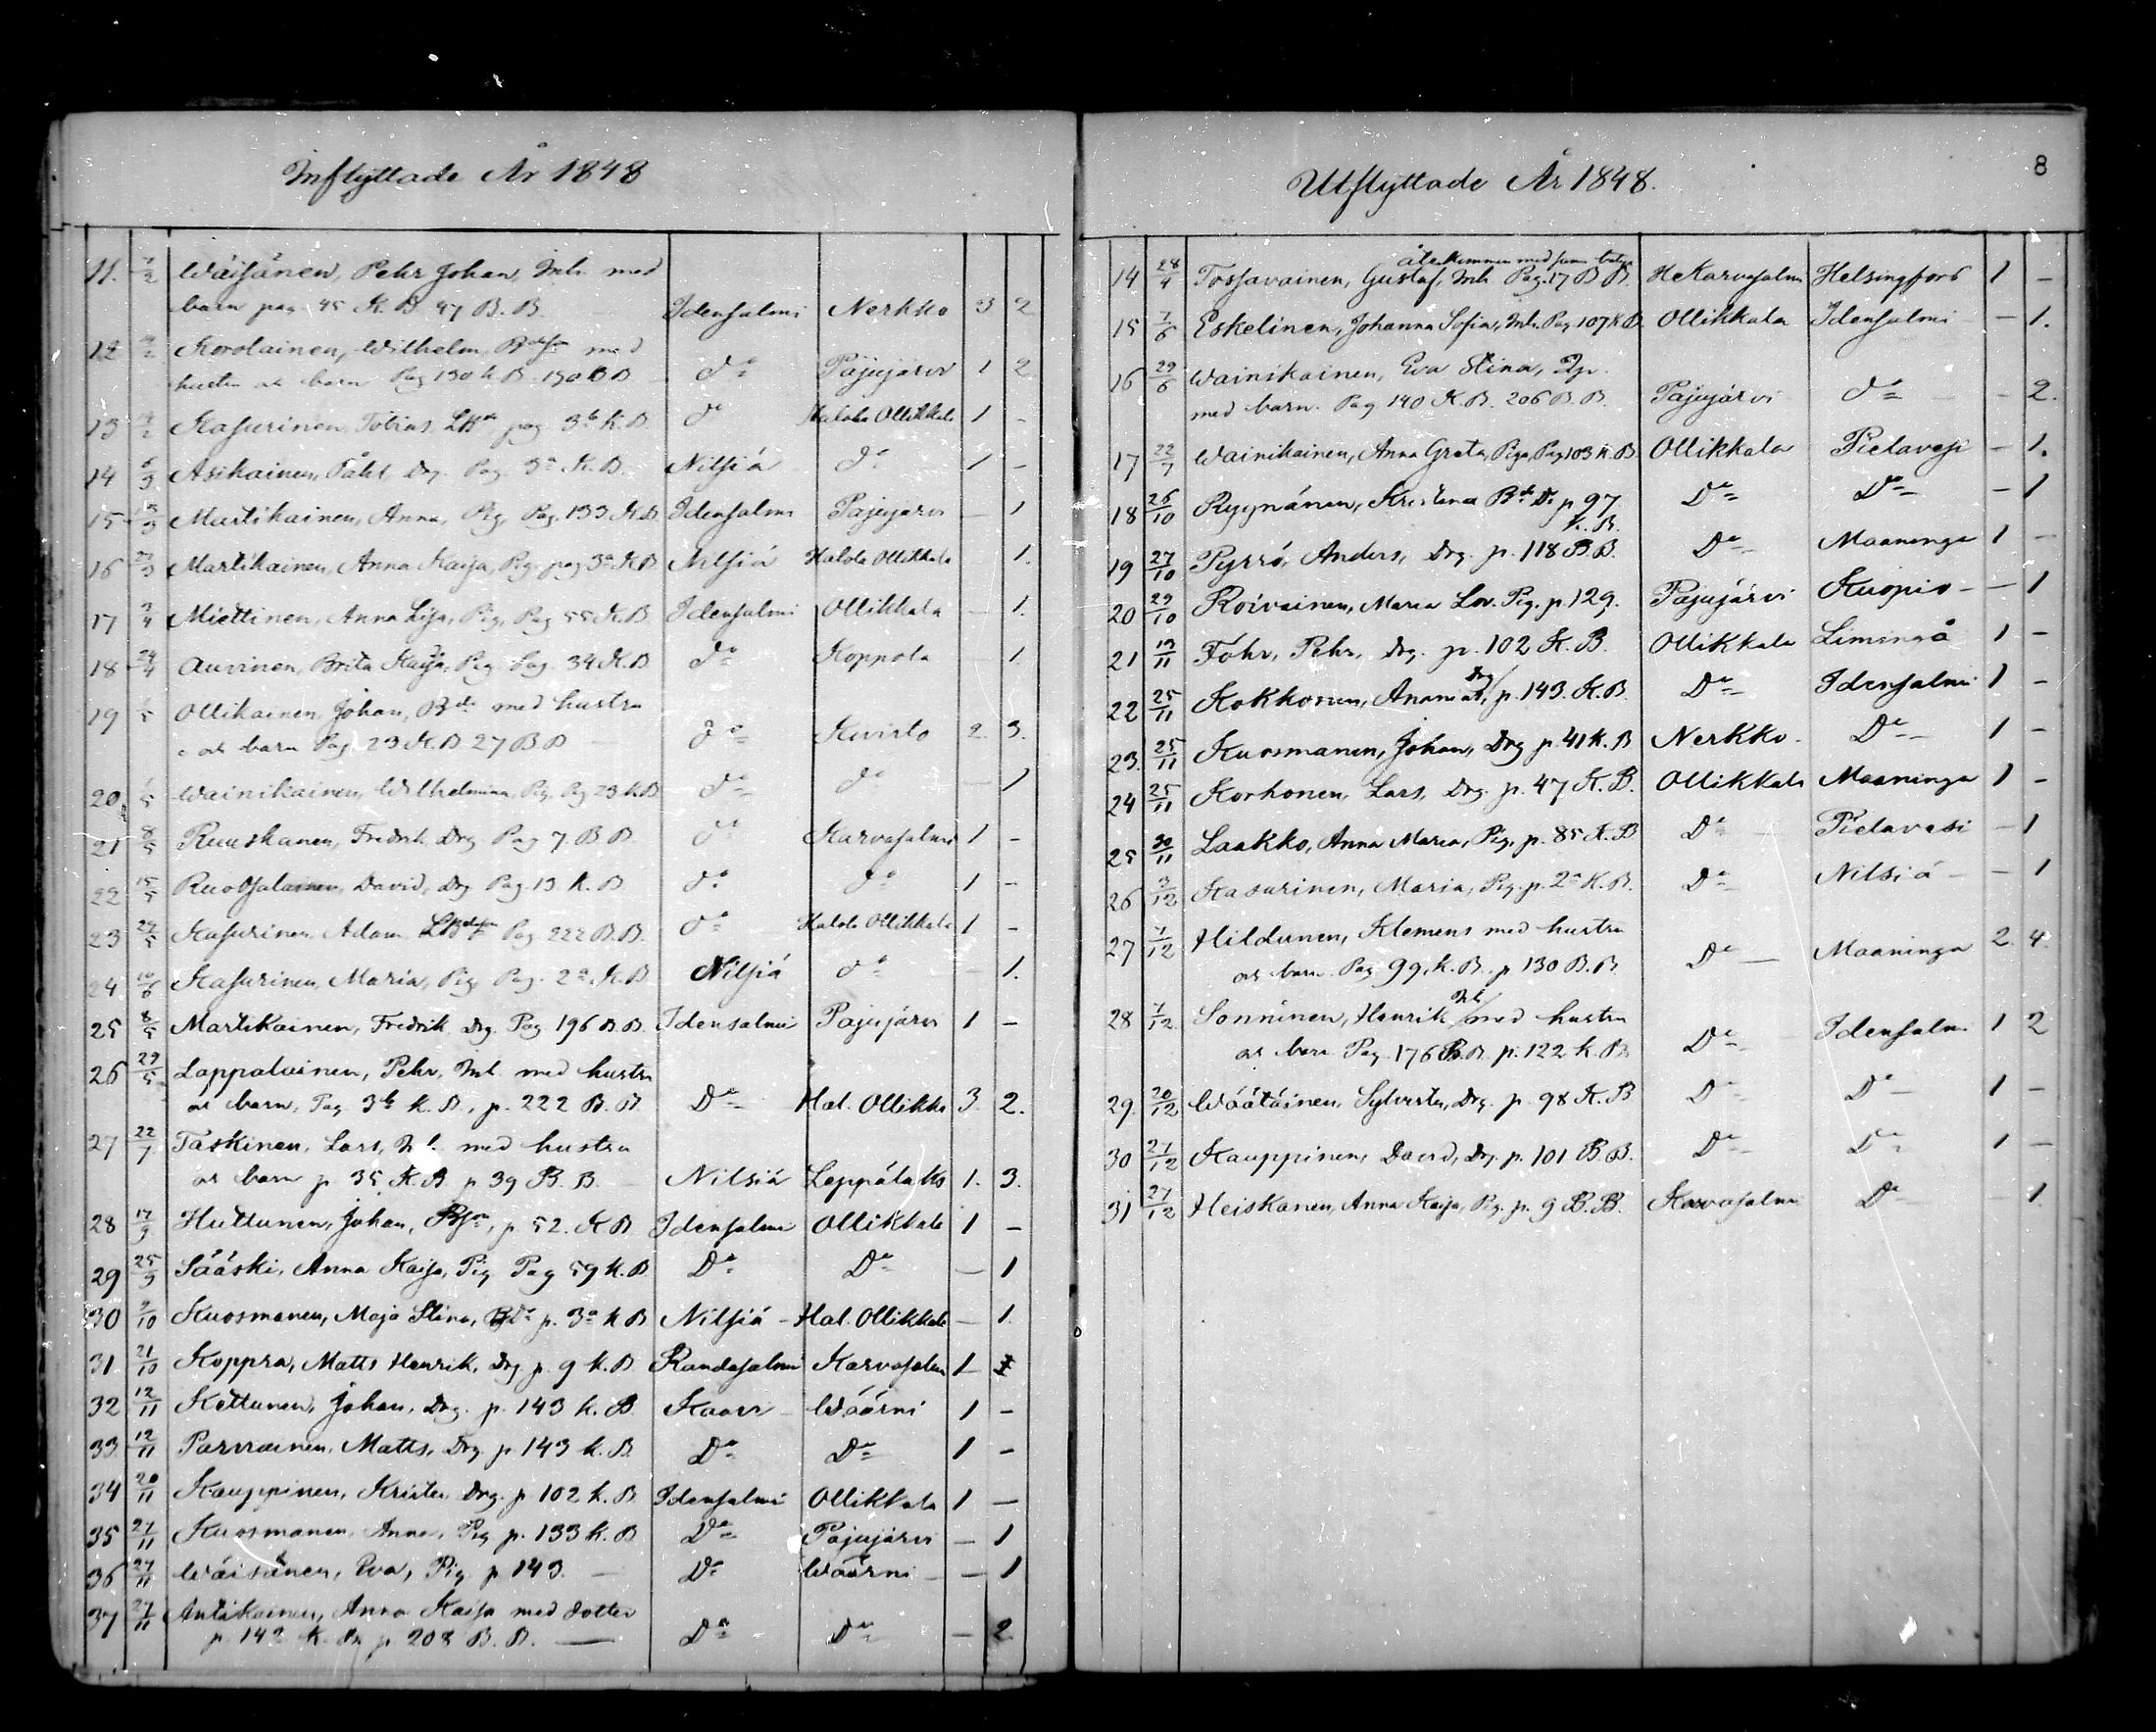 Inflyttade År 1848
11. 7/2 Wäisänen, Pehr Johan, Inh. med
barn pag. 45 K.B. 47 B.B. Idensalmi Nerkko 3 2
12 Korolainen, Wilhelm, med
hustru och barn Pag 130 K.B. 190 B.B. do Pajujärvi 1 2
13 Kasurinen, Tobias, pag 3b K.B. do Halola Ollikkala 1 -
14 5/3 Asikainen, Påhl Drg. Pag. 3a K.B. Nilsiä do 1 -
15 Martikainen, Anna, Pig. Pag. 133 K.B Idensalmi Pajujärvi - 1
16 Martikainen, Anna Kaisa, Pig. pag 3a K.B Nilsiä Halola Ollikkala 1.
17 Miettinen, Anna Lisa, Pig. Pag 55 K.B. Idensalmi Ollikkala - 1.
18 Auvinen, Brita Kaisa, Pig Pag. 34 K.B. do Koppola - 1.
19 Ollikainen, Johan, Bde med hustru
och barn Pag. 23 K.B 27 B.B do Kuvisto 2. 3.
20. Wainikainen, Wilhelmina, Pig. Pag 23 K.B do do - 1
21 8/5 Ruuskanen, Fredrik Drg Pag 7. B.B. do Karvasalmi 1 -
22 15/5 Ruotsalainen, David, Drg Pag. 13 K.B. do do 1 -
23 29/5 Kasurinen, Adam Pag. 222 B.B. do Halola Ollikkala 1 -
24. 10/6 Kasurinen, Maria, Pig. Pag. 2a K.B Nilsiä do - 1.
25 8/5 Martikainen, Fredrik Drg. Pag 196 B.B. Idensalmi Pajujärvi 1 -
26 29/5 Lappalainen, Pehr, Inh. med hustru
och barn, Pag 3b K.B., p. 222 B.B. Do Hal. Ollikka 3 2.
27 22/7 Taskinen, Lars, Inh. med hustru
och barn p 35 K.B. p 39 B.B. Nilsiä Leppälaks 1. 3.
28 17/9 Huttunen, Johan, p 52. K.B. Idensalmi Ollikkala 1 -
29 25/9 Sääski, Anna Kaisa, Pig Pag 59 K.B Do Do - 1
30 9/10 Kuosmanen, Maja Stina, p. 3a K.B Nilsiä Hal. Ollikkala - 1.
31. 21/10 Koppra, Matts Henrik, Drg p. 9 K.B. Randasalmi Karvasalmi 1 -
32 12/11 Kettunen, Johan, Drg. p. 143 K.B. Kaavi Wäärni 1 -
33. 12/11 Parviainen, Matts, Drg p 143 K.B. Do Do 1 -
34 20/11 Kauppinen, Krister Drg. p 102 K.B. Idensalmi Ollikkala 1 -
35 27/11 Kuosmanen, Anna, Pig p. 133 K.B Do Pajujärvi - 1
36 27/11 Wäisänen, Eva, Pig. p 143. Do Wäärni - 1
37 27/11 Antikainen, Anna Kaisa med dotter
p. 142 K.B. p 208 B.B. Do Do - 2
Utflyttade År 1848.
8
återkommen med samma betyg
14 28/4 Tossavainen, Gustaf, Inh. Pag. 17 B.B. Karvasalmi Helsingfors 1 -
15 7/6 Eskelinen, Johanna Sofia, Inh. Pag 107 K.B. Ollikkala Idensalmi - 1.
16 29/6 Wainikainen, Eva Stina,
med barn. Pag 140 K.B. 206 B.B. Pajujärvi do - 2.
17 22/7 Wainikainen, Anna Greta, Piga, Pag 103 K.B Ollikkala Pielavesi - 1.
18 26/10 Ryynänen, Kristina p 97
K.B. Do Do - 1
19 27/10 Pyrrö, Anders, Drg. p. 118 B.B. Do Maaninga 1 -
20 29/10 Roivainen, Maria Lov. Pig. p. 129. Pajujärvi Kuopio - 1
21 19/11 Fohr, Pehr, Drg. p. 102 K.B. Ollikkala Limingå 1 -
22 25/11 Kokkonen, Ananias, Drg p. 143. K.B. Do Idensalmi 1 -
23. 25/11 Kuosmanen, Johan, Drg p. 41 K.B Nerkko. Do 1 -
24 25/11 Korhonen, Lars, Drg. p. 47 K.B. Ollikkala Maaninga 1 -
25 30/11 Laakko, Anna Maria, Pig, p. 85 K.B Do Pielavesi - 1
26 3/12 Kasurinen, Maria, Pig. p. 2a K.B. Do Nilsiä - 1
27 7/12 Hildunen, Klemens med hustru
och barn. Pag 99, K.B. p 130 B.B. Do Maaninga 2. 4.
28 7/12. Sonninen, Henrik Inh med hustru
och barn Pag. 176 B.B. p. 122 K.B Do Idensalmi 1 2
29. 20/12 Wäätäinen, Sylvester, Drg. p. 98 K.B Do Do 1 -
30 27/12 Kauppinen, David, Drg. p. 101 B.B. Do Do 1 -
31 27/12 Heiskanen, Anna Kaisa, Pig. p. 9 B.B. Karvasalmi Do - 1.